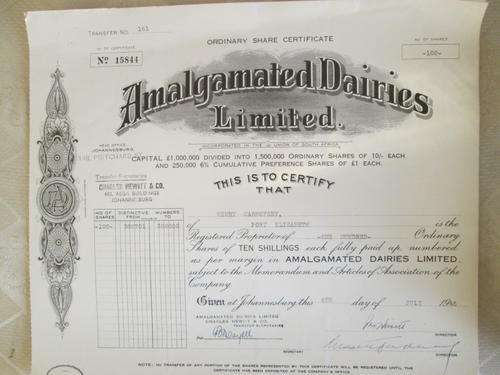 TRANSFER No. 161
ORDINARY SHARE CERTIFICATE
No OF CERTIFICATE
No OF SHARES
No 15844
-100-
Amalgamated Dairies
Limited.
HEAD OFFICE
JOHANNESBURG.
INCORPORATED IN THE UNION OF SOUTH AFRICA
CAPITAL £1,000,000 DIVIDED INTO 1,500,000 ORDINARY SHARES OF 10/- EACH
AND 250,000 6% CUMULATIVE PREFERENCE SHARES OF £1 EACH.
Transfer Secretaries
CHARLES HEWITT & CO.
JOHANNESBURG
THIS IS TO CERTIFY
THAT
NO OF SHARES
DISTINCTIVE NUMBERS
FROM TO
-100-
of PORT ELIZABETH is the
Registered Proprietor of -ONE HUNDRED- Ordinary
Shares of TEN SHILLINGS each fully paid up, numbered
as per margin in AMALGAMATED DAIRIES LIMITED,
subject to the Memorandum and Articles of Association of the
Company
Given at Johannesburg this day of JULY
AMALGAMATED DAIRIES LIMITED
CHARLES HEWITT & CO.
TRANSFER SECRETARIES
Per
SECRETARY
DIRECTOR
DIRECTOR
NOTE: NO TRANSFER OF ANY PORTION OF THE SHARES REPRESENTED BY THIS CERTIFICATE WILL BE REGISTERED UNTIL THE
CERTIFICATE HAS BEEN DEPOSITED AT THE COMPANY'S OFFICE